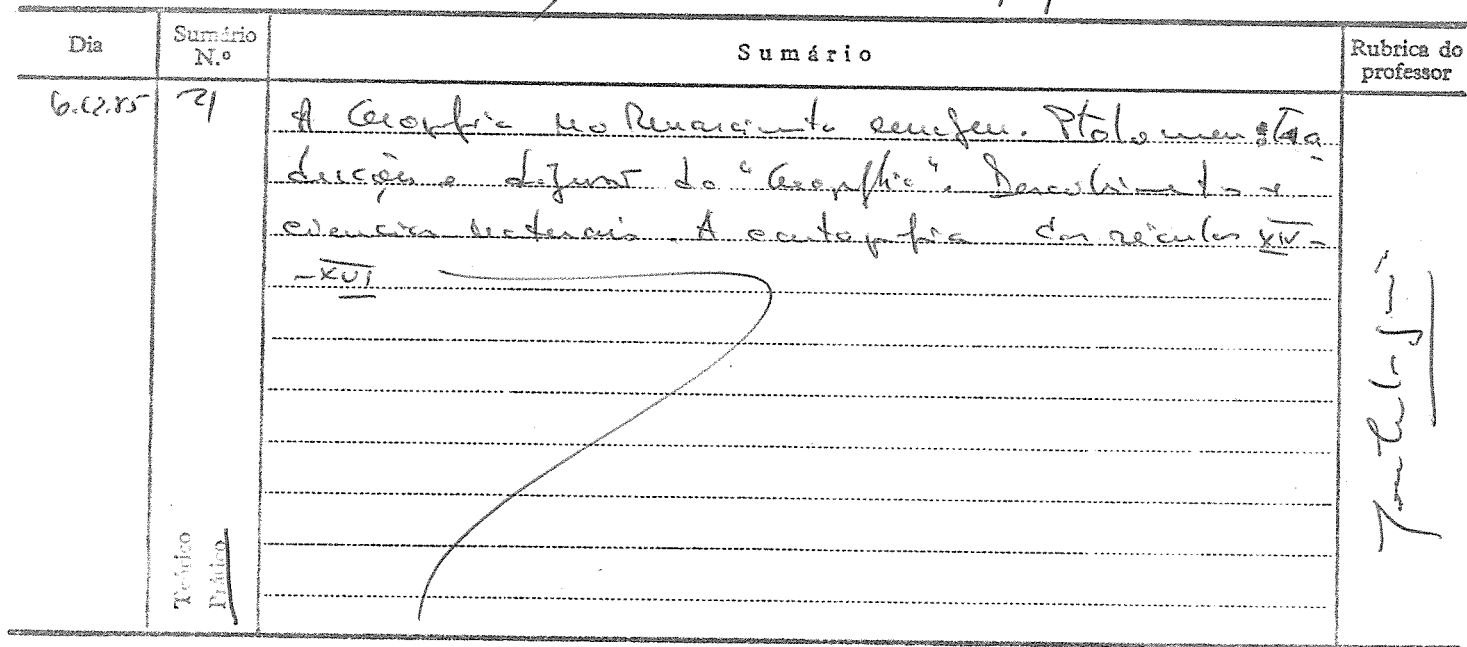 Dia
Sumário N.º
Sumário
Rubrica do professor
6.12.85 21
A Geografia no Renascimento europeu. Ptolomeu: Tra
dução e difusão da "Geografia". Descobrimentos e
ciências naturais. A cartografia dos séculos XIV-
-XVI
Teórico
Prático